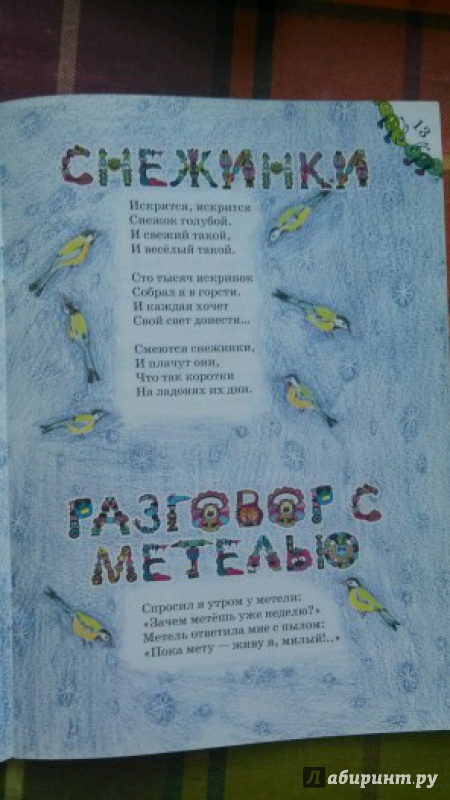 13
СНЕЖИНКИ
Искрится, искрится
Снежок голубой.
И свежий такой,
И весёлый такой.
Сто тысяч искринок
Собрал я в горсти.
И каждая хочет
Свой свет донести...
Смеются снежинки,
И плачут они,
Что так коротки
На ладонях их дни.
РАЗГОВОР С
МЕТЕЛЬЮ
Спросил я утром у метели:
«Зачем метёшь уже неделю?»
Метель ответила мне с пылом:
«Пока мету — живу я, милый!..»
Лабиринт.ру